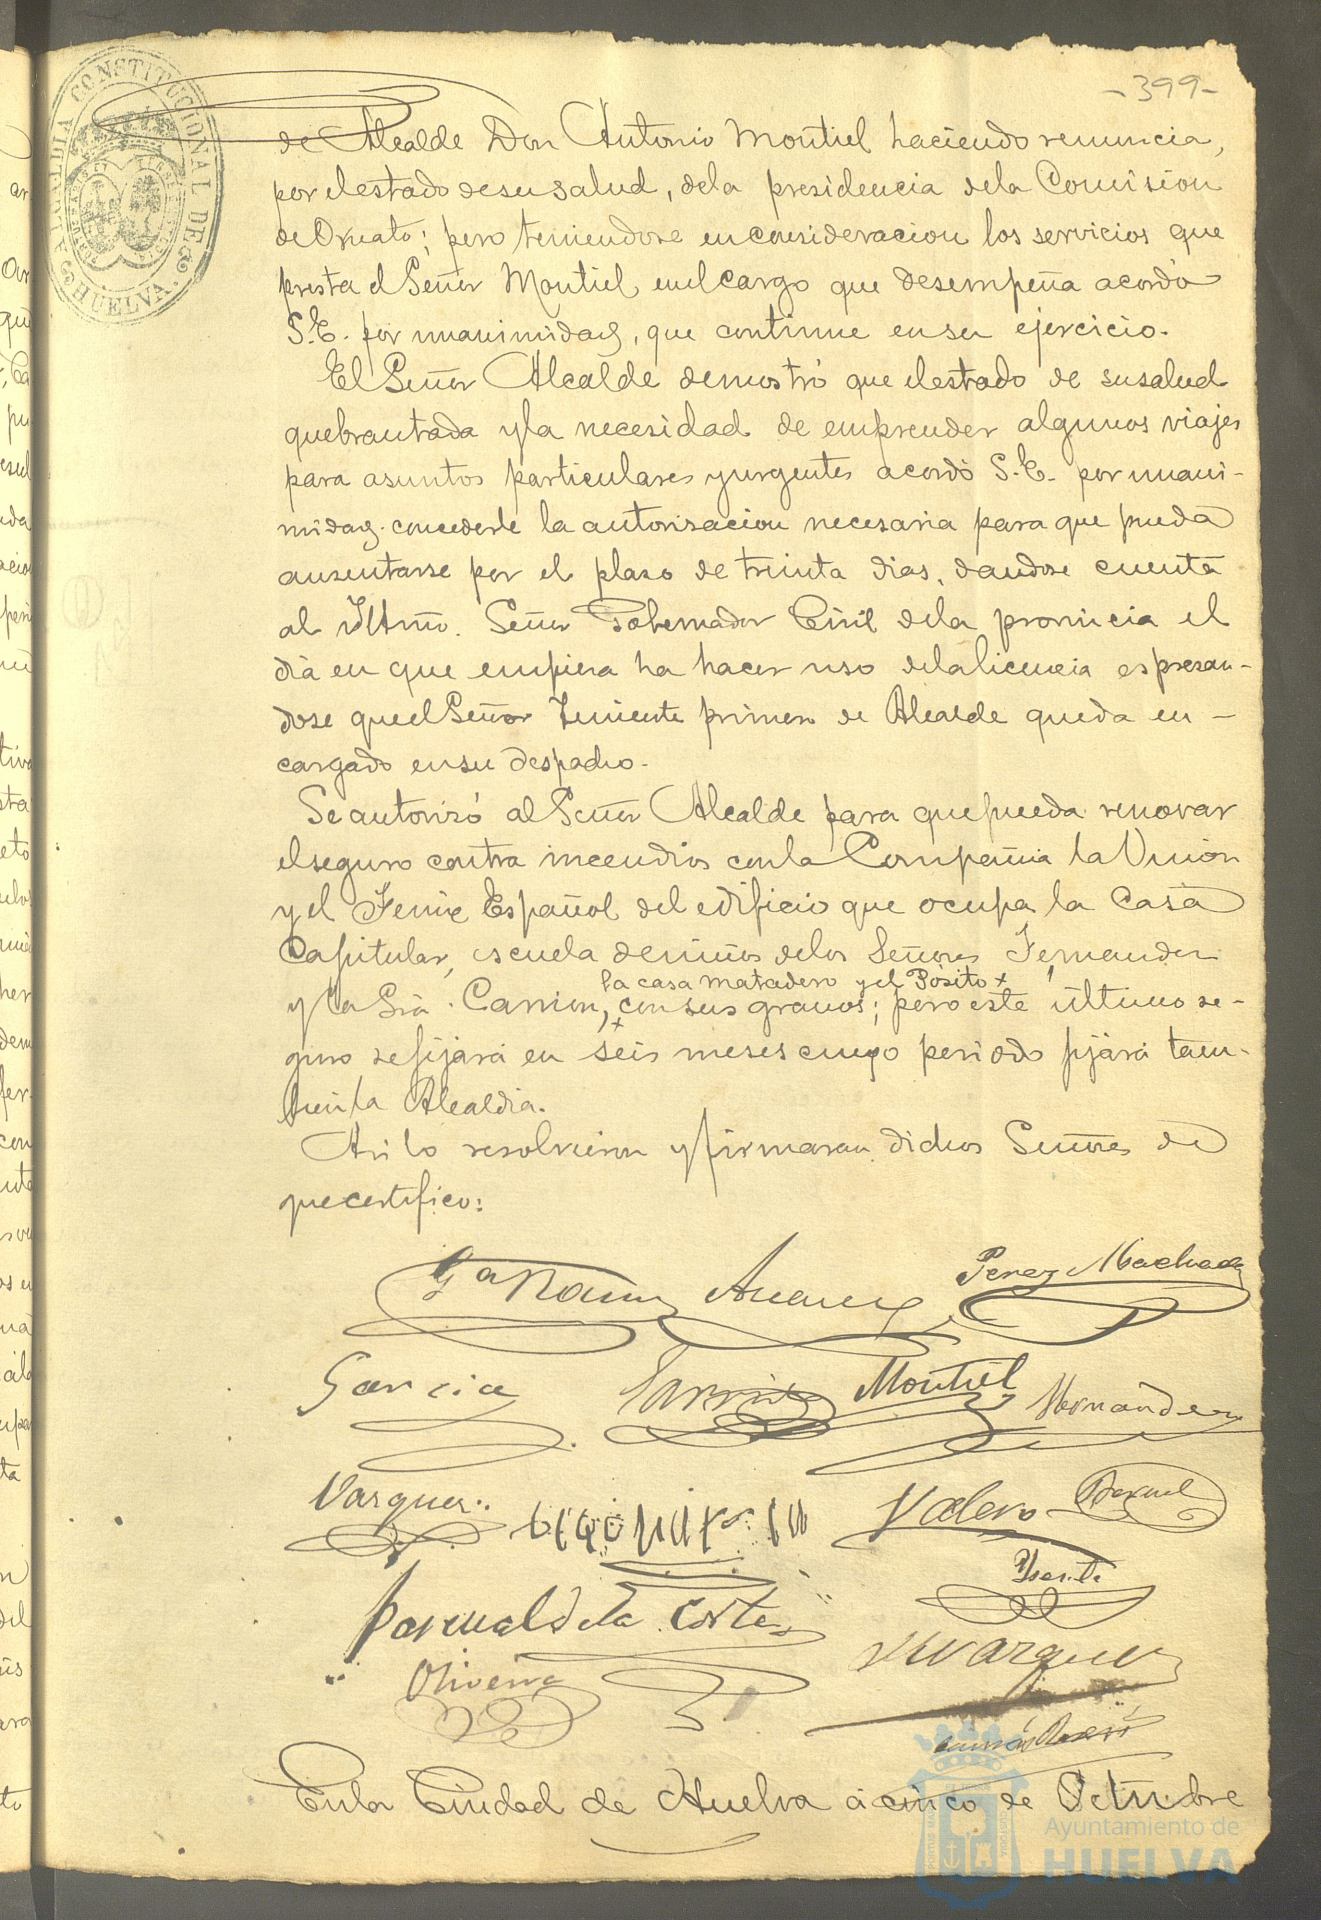 -399-
ALCALDIA CONSTITUCIONAL DE HUELVA.
de Alcalde Don Antonio Montiel haciendo renuncia,
por el estado de su salud, de la presidencia de la Comision
de Ornato; pero teniendose en consideracion los servicios que
presta el Señor Montiel en el cargo que desempeña acordó
S.E. por unanimidad, que continue en su ejercicio.
El Señor Alcalde demostró que el estado de su salud
quebrantada y la necesidad de emprender algunos viajes
para asuntos particulares y urgentes acordó S.E. por unani-
midad concederle la autorisacion necesaria para que pueda
ausentarse por el plaso de treinta dias, dandose cuenta
al Iltmo. Señor Gobernador Civil de la provincia el
dia en que empiera ha hacer uso de la licencia espresan-
dose que el Señor Teniente primero de Alcalde queda en-
cargado en su despacho.
Se autorizó al Señor Alcalde para que pueda renovar
el seguro contra incendios con la Compañia la Union
y el Fenix Español del edificio que ocupa la Casa
Capitular, escuela de niños de los Señores Fernandez
la casa matadero y el Pósito x
y la Srа. Carrion, con sus granos; pero este último se-
guro se fijará en seis meses cuyo periodo fijará tam-
bien la Alcaldia.
Asi lo resolvieron y firmaran dichos Señores de
que certifico:
Perez Machado
Garcia
Montiel
Hernández
Vazquez
Valero
Pascual de la Corte
Oliveira
Vazquez
En la Ciudad de Huelva á cinco de Octubre
Ayuntamiento de
HUELVA